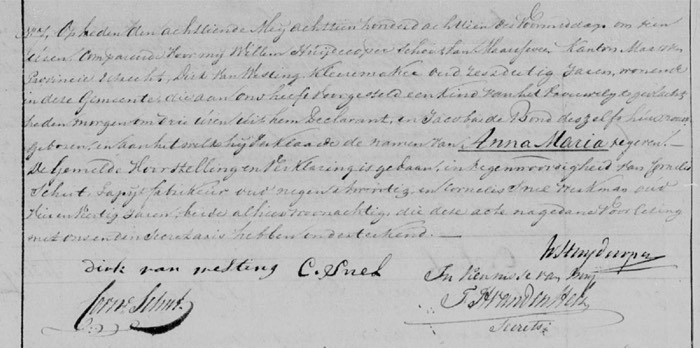 No 7, Op heden den achttiende Meij achttien honderd achttien des voormiddags om tien
uren, Compareerde voor mij Willem Huijdecoper Schout van Maarseveen Kanton Maarssen
Provincie Utrecht, Dirk van Westing kleermaker oud zesendertig Jaren, wonende
in deze Gemeente, die aan ons heeft voorgesteld een kind van het vrouwelijk geslacht,
heden morgen om drie uren uit hem Declarant, en Jacoba de Bond deszelfs huisvrouw
geboren, en aan het welk hij verklaarde de namen van Anna Maria te geven. —
De Gemelde Voorstelling en Verklaring is gedaan, in tegenwoordigheid van
Schut, Tapijt fabrikeur oud negen en veertig, en Cornelis Snel Werkman oud
en Veertig Jaren, beide alhier woonachtig, die deze acte na gedane Voorlezing
met ons en den Secretaris hebben onderteekend. —
dirk van westing C. Snel WHuydecoper
Schut In kennisse van mij
Secrets